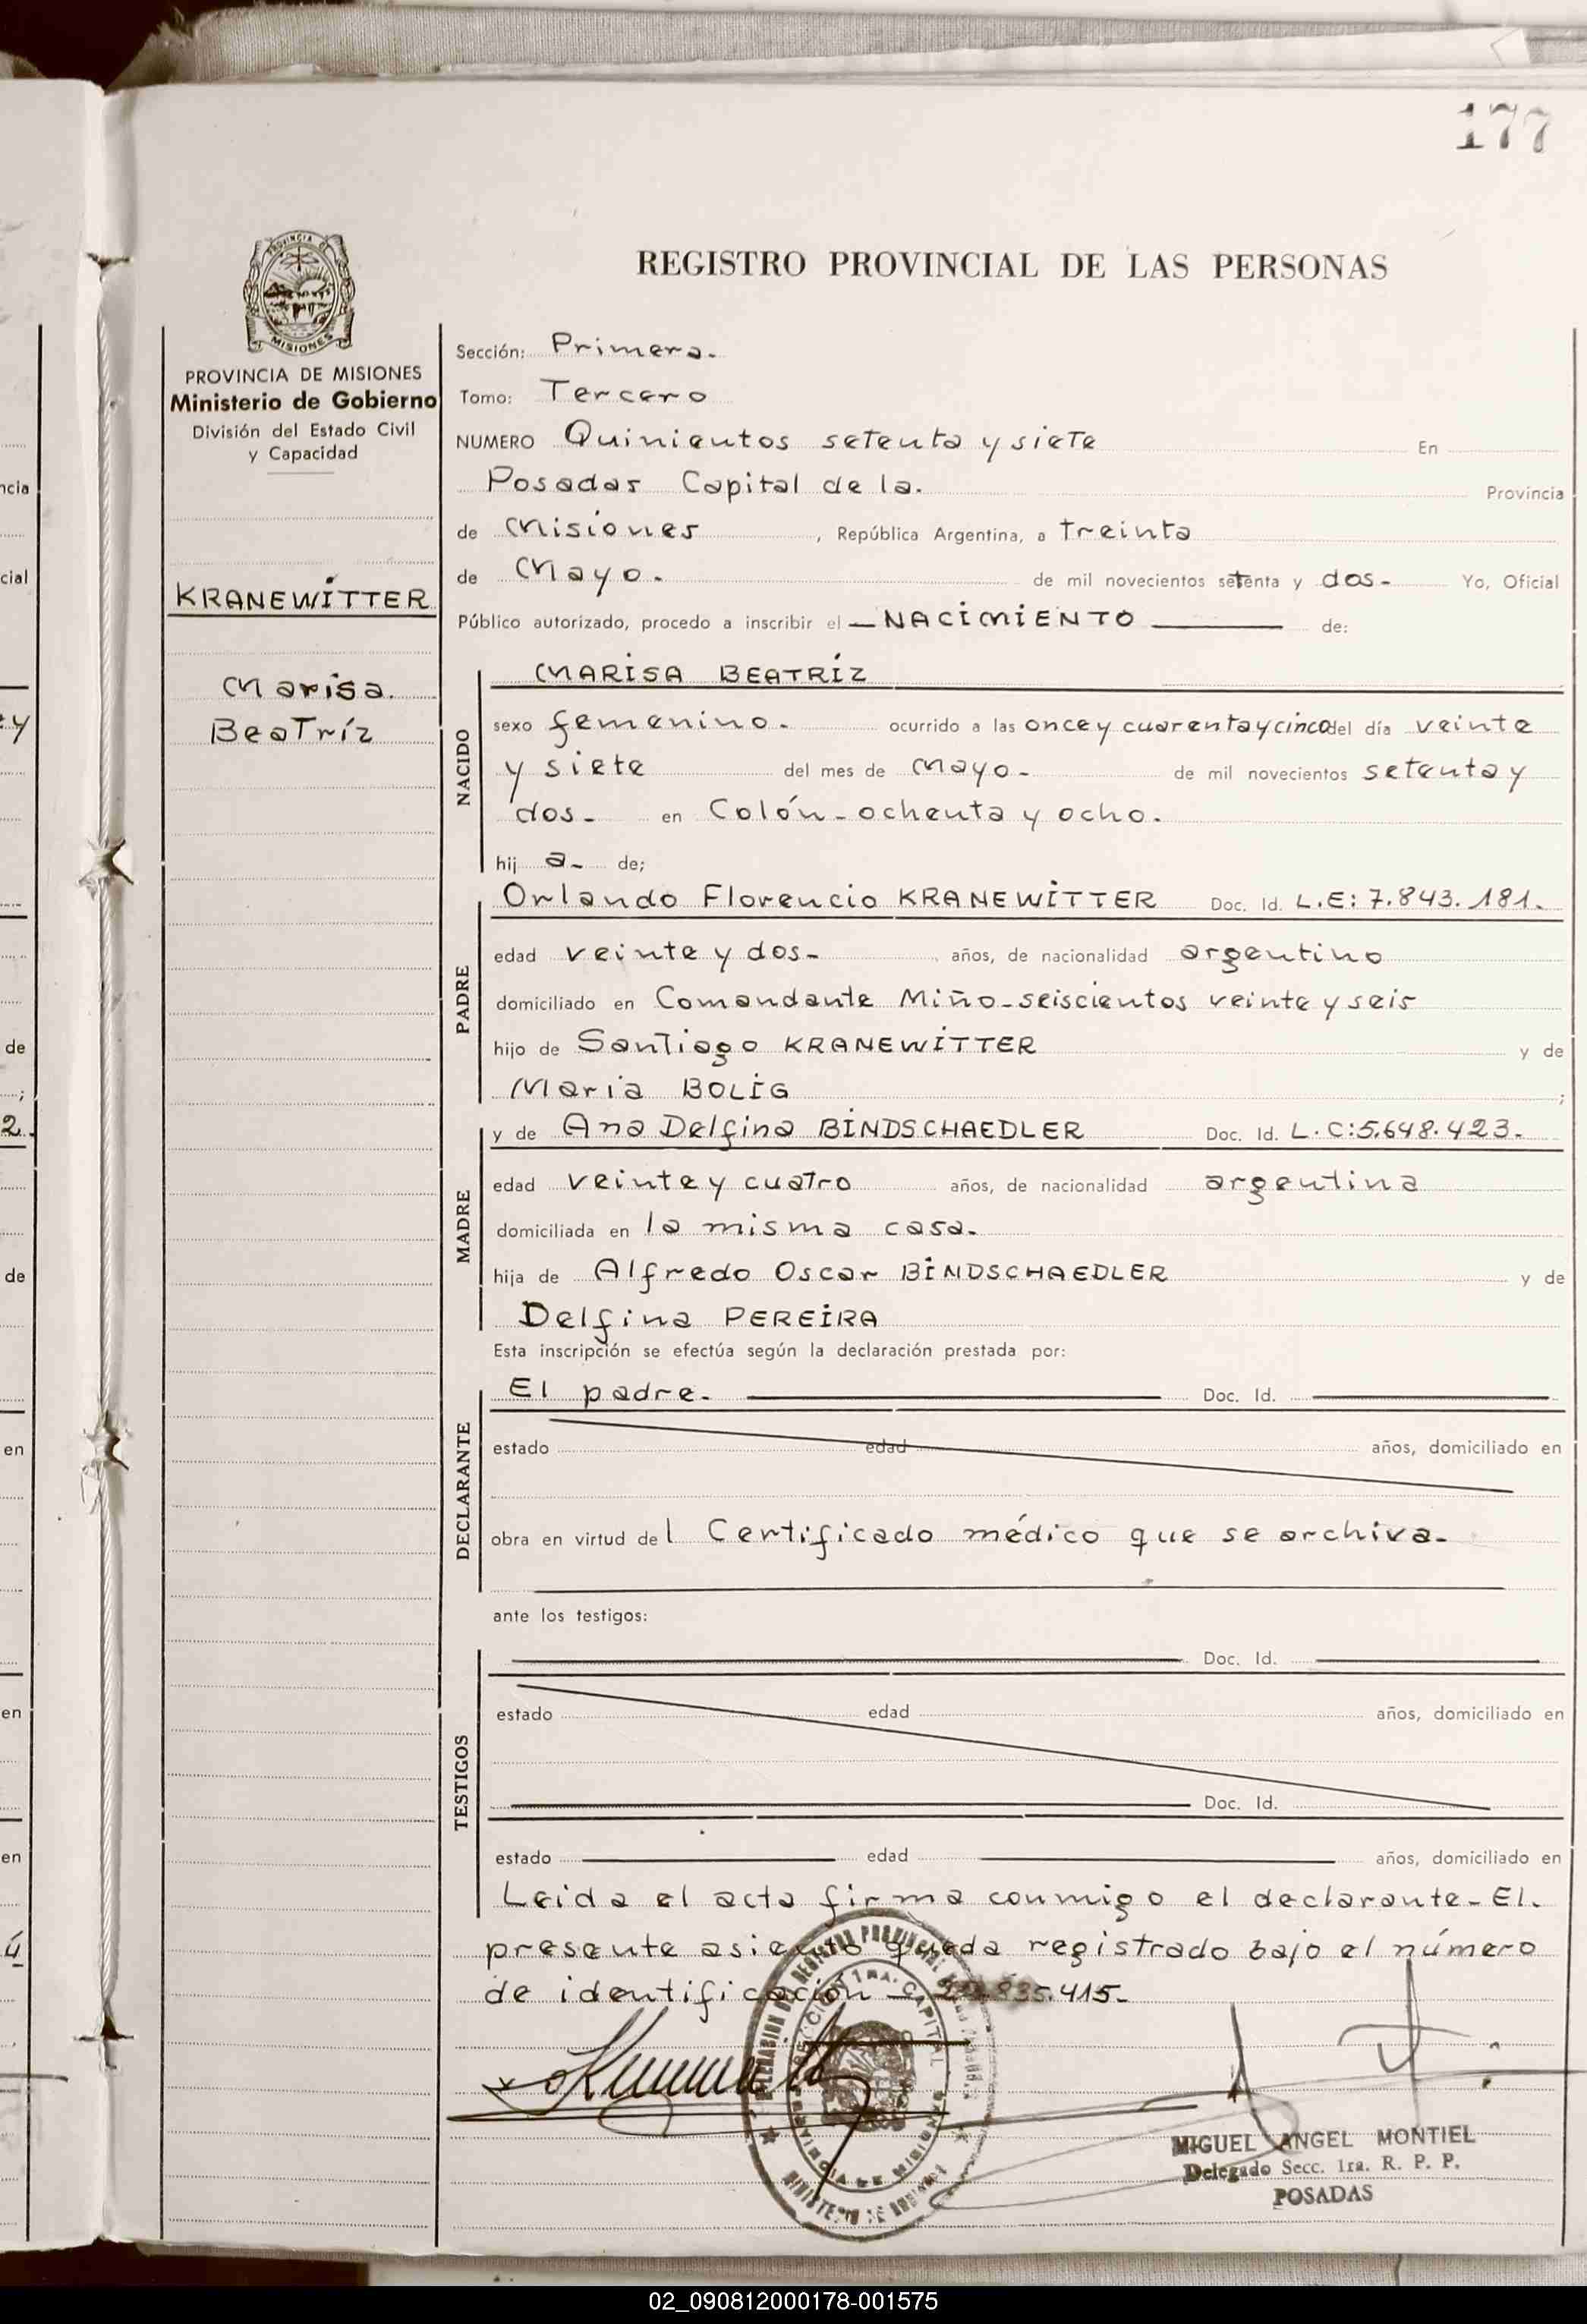 177
PROVINCIA DE
MISIONES
PROVINCIA DE MISIONES
Ministerio de Gobierno
División del Estado Civil
y Capacidad
KRANEWITTER
Marisa.
Beatríz
REGISTRO PROVINCIAL DE LAS PERSONAS
Sección: Primera.
Tomo: Tercero
NUMERO Quinientos setenta y siete En
Posadas Capital de la. Provincia
de Misiones , República Argentina, a treinta
de Mayo. de mil novecientos setenta y dos- Yo, Oficial
Público autorizado, procedo a inscribir el — NACIMIENTO — de:
NACIDO
MARISA BEATRÍZ
sexo femenino. ocurrido a las once y cuarenta y cinco del día veinte
y siete del mes de Mayo- de mil novecientos setenta y
dos- en Colón-ochenta y ocho.
hij a- de;
PADRE
Orlando Florencio KRANEWITTER Doc. Id. L.E: 7.843.181.
edad veinte y dos- años, de nacionalidad argentino
domiciliado en Comandante Miño-seiscientos veinte y seis
hijo de Santiago KRANEWITTER y de
Maria BOLIG ;
MADRE
y de Ana Delfina BINDSCHAEDLER Doc. Id. L.C:5.648.423.
edad veinte y cuatro años, de nacionalidad argentina
domiciliada en la misma casa.
hija de Alfredo Oscar BINDSCHAEDLER y de
Delfina PEREIRA
Esta inscripción se efectúa según la declaración prestada por:
DECLARANTE
El padre. Doc. Id.
estado edad años, domiciliado en
obra en virtud del Certificado médico que se archiva-
ante los testigos:
TESTIGOS
Doc. Id.
estado edad años, domiciliado en
Doc. Id.
estado edad años, domiciliado en
Leida el acta firma conmigo el declarante-El.
presente asiento queda registrado bajo el número
de identificación - 835.415-
MIGUEL ANGEL MONTIEL
Delegado Secc. 1ra. R. P. P.
POSADAS
ncia
cial
y
de
;
2.
de
en
en
en
02_090812000178-001575